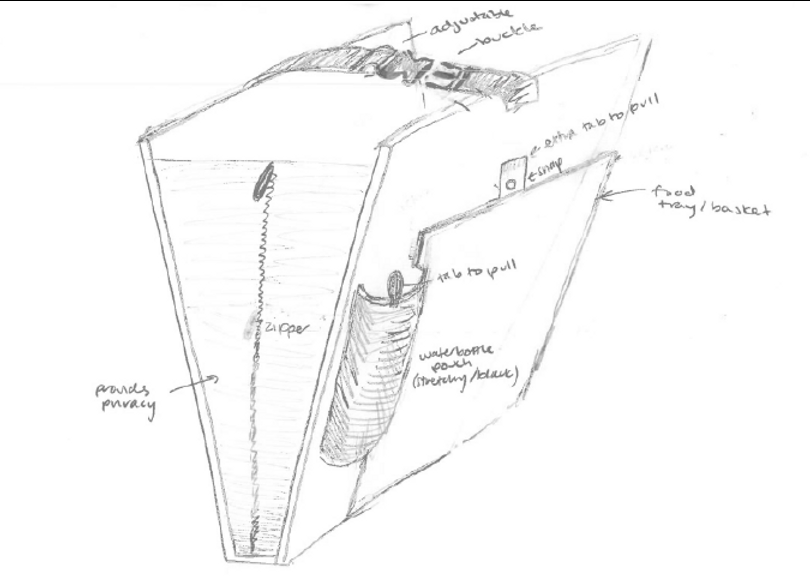 adjustable
buckle
extra tab to pull
snap
food
tray/basket
tab to pull
zipper
waterbottle
pouch
(stretchy/black)
provides
privacy